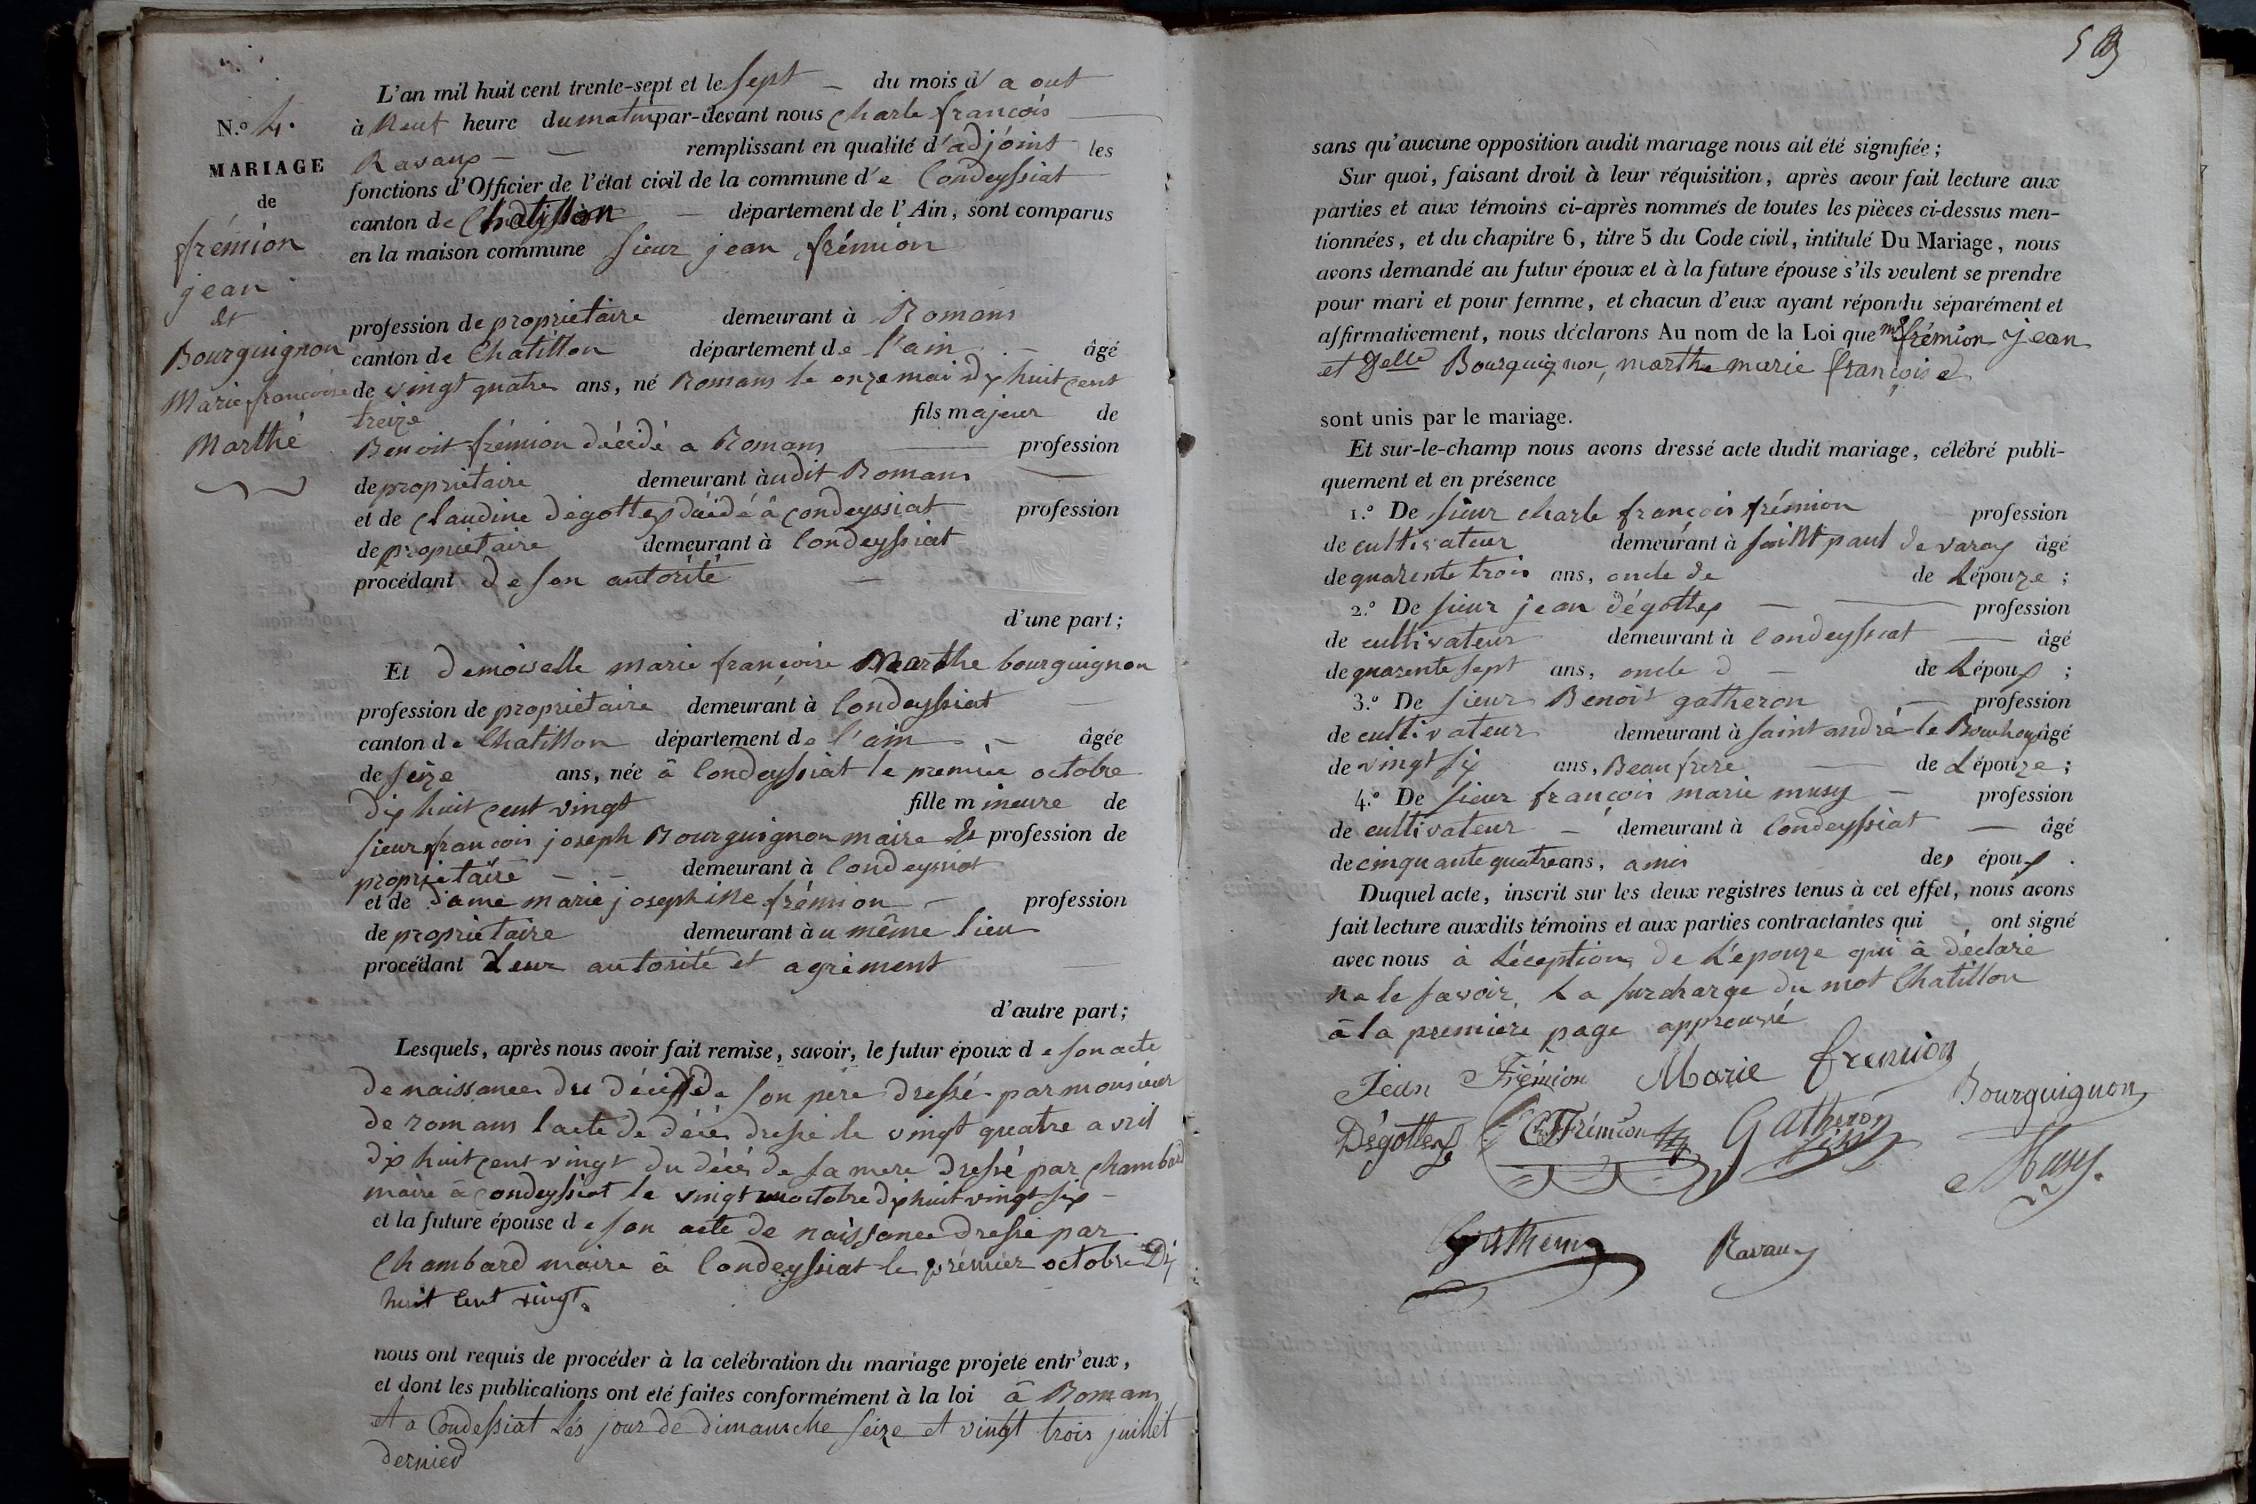 N.o 4.
MARIAGE
de
frémion
jean
et
Bourguignon
Marie françoise
Marthé
L'an mil huit cent trente-sept et le sept du mois d'a out
à Neuf heure du matin par-devant nous Charle françois
Ravaux remplissant en qualité d'adjoint les
fonctions d'Officier de l'état civil de la commune d'e Condeyssiat
canton de Chatillon département de l'Ain, sont comparus
en la maison commune sieur jean frémion
profession de propriétaire demeurant à Romans
canton de Chatillon département de l'ain âgé
de vingt quatre ans, né Romans le onze mai dix huit cent
treize fils majeur de
Benoit frémion décédé a Romans profession
de propriétaire demeurant àudit Romans
et de Claudine dégottex décédé â Condeyssiat profession
de propriétaire demeurant à Condeyssiat
procédant de son autorité
d'une part;
Et demoiselle marie françoise Marthe bourguignon
profession de propriétaire demeurant à Condeyssiat
canton de Chatillon département de l'ain âgée
de seize ans, née â Condeyssiat le premier octobre
dix huit cent vingt fille mineure de
sieur françois joseph Bourguignon maire Et profession de
propriétaire demeurant à Condeyssiat
et de dame marie josephine frémion profession
de propriétaire demeurant àu même lieu
procédant Leur autorité et agrément
d'autre part;
Lesquels, après nous avoir fait remise, savoir, le futur époux de son acte
de naissance du décès de son père dressé par monsieur
de romans l'acte de décès dressé le vingt quatre avril
dix huit cent vingt du décès de sa mere dressé par Chambard
maire â Condeyssiat le vingt octobre dix huit vingt six
et la future épouse de son acte de naissance dressé par
Chambard maire â Condeyssiat le premier octobre Dix
huit cent vingt.
nous ont requis de procéder à la celébration du mariage projeté entr'eux,
et dont les publications ont eté faites conformément à la loi â Romans
et a Condessiat Les jour de dimanche seize et vingt trois juillet
dernier
sans qu'aucune opposition audit mariage nous ait été signifiée;
Sur quoi, faisant droit à leur réquisition, après avoir fait lecture aux
parties et aux témoins ci-après nommés de toutes les pièces ci-dessus men-
tionnées, et du chapitre 6, titre 5 du Code civil, intitulé Du Mariage, nous
avons demandé au futur époux et à la future épouse s'ils veulent se prendre
pour mari et pour femme, et chacun d'eux ayant répondu séparément et
affirmativement, nous déclarons Au nom de la Loi que mr frémion Jean
et Delle Bourguignon, marthe marie françoise
sont unis par le mariage.
Et sur-le-champ nous avons dressé acte dudit mariage, célébré publi-
quement et en présence
1.o De sieur charle françois frémion profession
de cultivateur demeurant à saint paul de varax âgé
de quarente trois ans, oncle de de Lépouze;
2.o De sieur jean dégottex profession
de cultivateur demeurant à Condeyssiat âgé
de quarente sept ans, oncle d de Lépoux;
3.o De sieur Benoit gatheron profession
de cultivateur demeurant à saint andré le Bouchoux âgé
de vingt six ans, Beau frere de Lépouze;
4.o De sieur françois marie musy profession
de cultivateur demeurant à Condeyssiat âgé
de cinquante quatre ans, amis des époux.
Duquel acte, inscrit sur les deux registres tenus à cet effet, nous avons
fait lecture auxdits témoins et aux parties contractantes qui ont signé
avec nous à Léception de L'épouze qui â déclaré
ne le savoir, La surcharge du mot Chatillon
â la premiere page approuvé
Jean Frémion Marie fremion
Bourguignon
Dégottex CFFrémion Gatheron
Musy.
Gatheron Ravaux